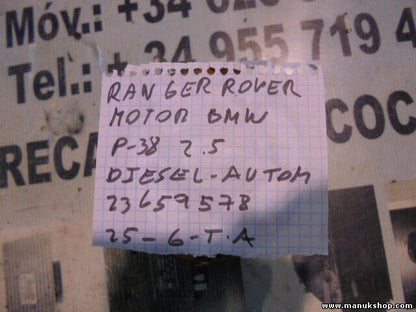 Móv.: +34 620
Tel.: + 34 955 719
RECA
COC
RANGER ROVER
MOTOR BMW
P-38 2.5
DIESEL-AUTOM
23659578
25-6-T.A
www.manukshop.com